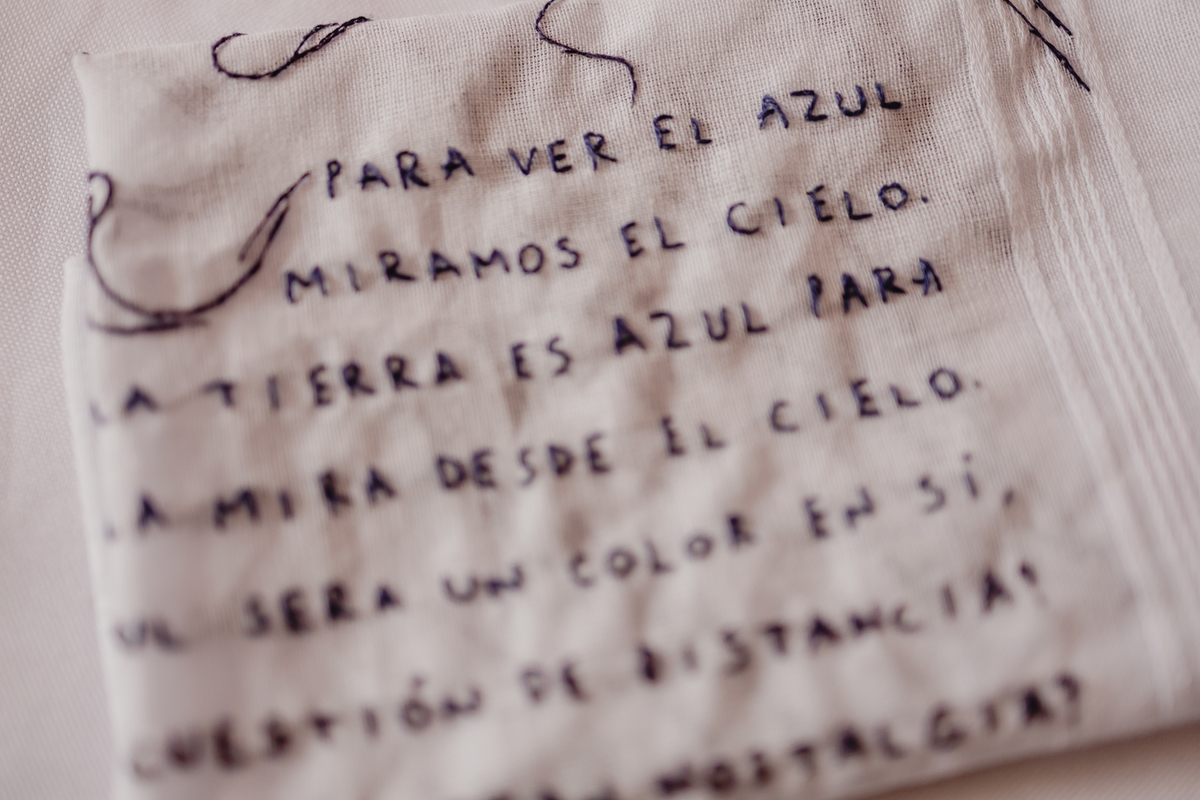 PARA VER EL AZUL
MIRAMOS EL CIELO.
LA TIERRA ES AZUL PARA
LA MIRA DESDE EL CIELO.
UL SERA UN COLOR EN SÍ,
CUESTIÓN DE DISTANCIA?
NOSTALGIA?